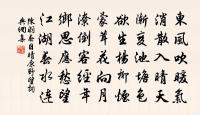 東風吹暖氣
消散入晴天
漸變池塘色
欲生楊柳煙
蒙茸花向月
潦倒客經年
鄉思應愁望
江湖春水連
陳羽春日晴原野望詞
典網集